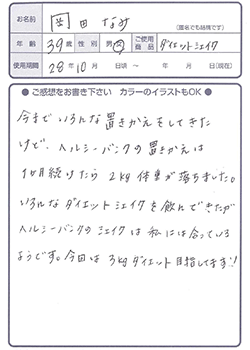 お名前 岡田なみ (匿名でも結構です)
年齢 39歳 性別 男・女 ご使用商品 ダイエットシェイク
使用期間 28年10月 日頃 ～ 年 月 日(現在)
●ご感想をお書き下さい カラーのイラストもOK●
今までいろんな置きかえをしてきた
けど、ヘルシーバンクの置きかえは
1か月続けたら2kg体重が落ちました。
いろんなダイエットシェイクを飲んできたが
ヘルシーバンクのシェイクは私には合っている
ようです。今回は3kgダイエット目指してます!!